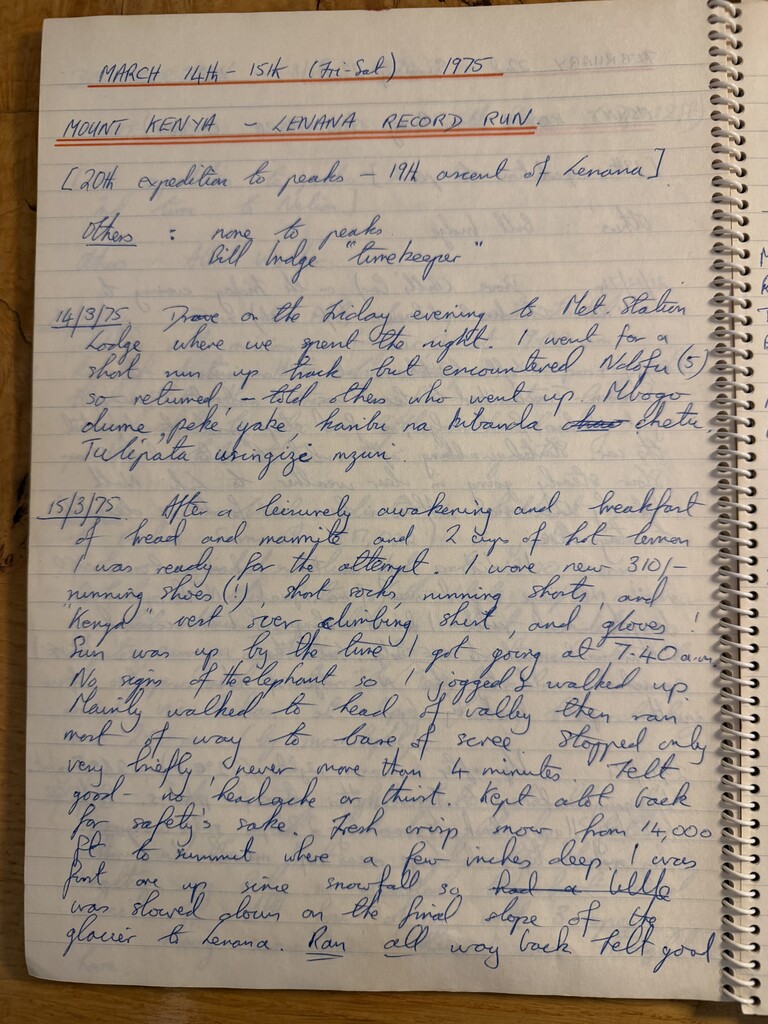 MARCH 14th - 15th (Fri-Sat) 1975
MOUNT KENYA - LENANA RECORD RUN.
[20th expedition to peaks - 19th ascent of Lenana]
Others : none to peaks
Bill Indge "timekeeper"
14/3/75 Drove on the Friday evening to Met. Station
Lodge where we spent the night. I went for a
short run up track but encountered Ndofu (5)
so returned, - told others who went up. Mbogo
dume, peke yake, karibu na kibanda chetu.
Tulipata usingizi mzuri.
15/3/75 After a leisurely awakening and breakfast
of bread and marmite and 2 cups of hot lemon
I was ready for the attempt. I wore new 310/-
running shoes (!), short socks, running shorts, and
"Kenya" vest over climbing shirt, and gloves!
Sun was up by the time I got going at 7.40 a.m.
No signs of the elephant so I jogged & walked up.
Mainly walked to head of valley then ran
most of way to base of scree. Stopped only
very briefly, never more than 4 minutes. Felt
good - no headache or thirst. Kept a bit back
for safety's sake. Fresh crisp snow from 14,000
ft to summit where a few inches deep. I was
first one up since snowfall so had a little
was slowed down on the final slope of the
glacier to Lenana. Ran all way back. Felt good